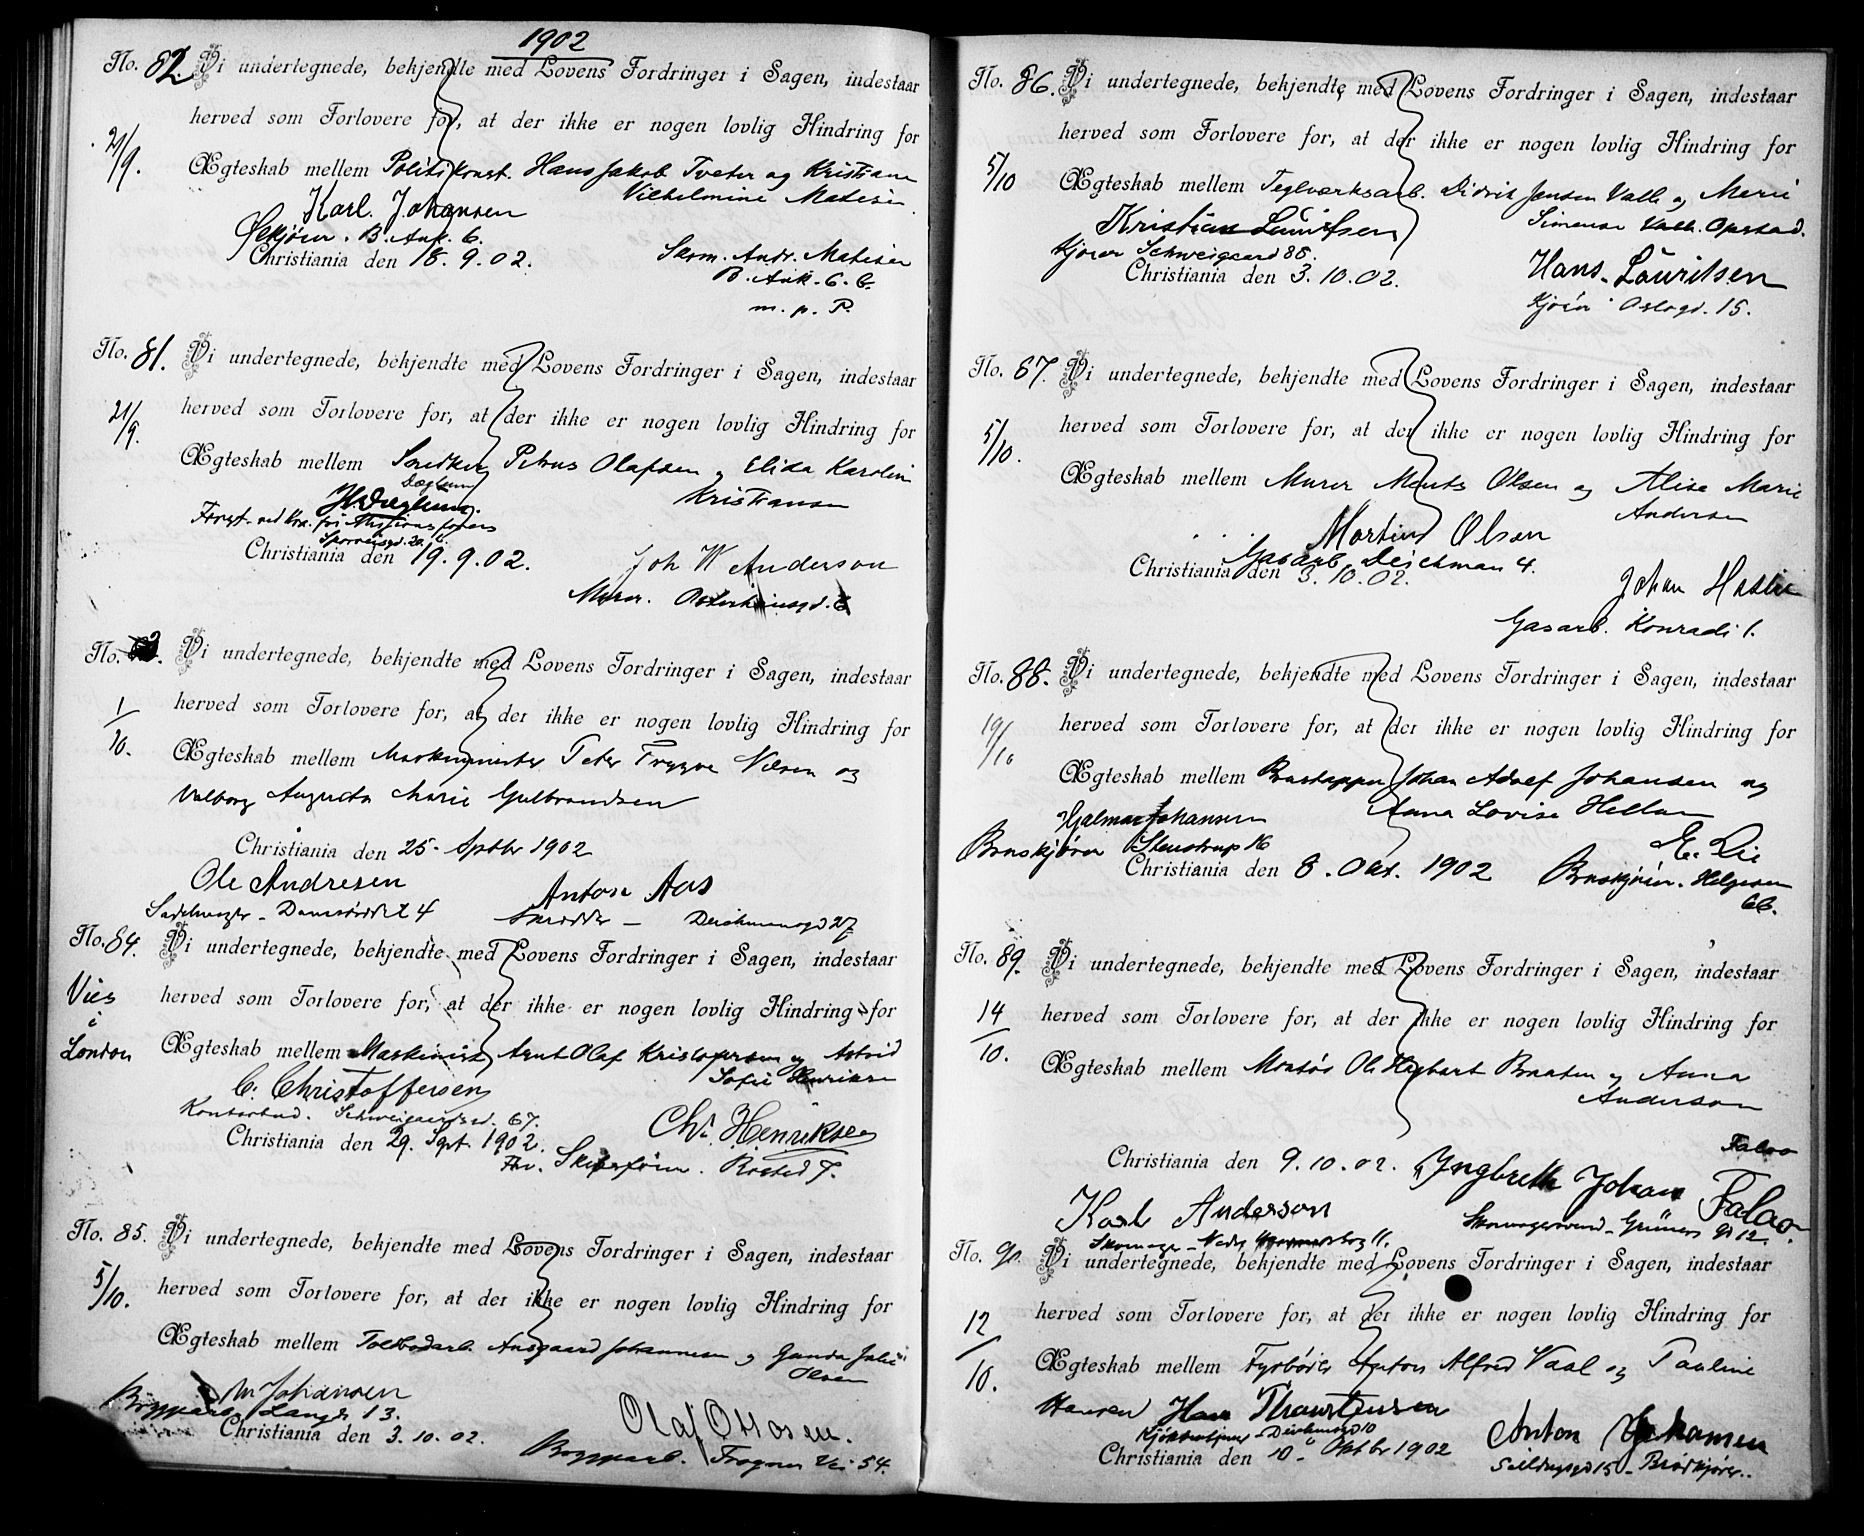 1902
No. 82. Vi undertegnede, bekjendte med Lovens Fordringer i Sagen, indestaar
herved som Forlovere for, at der ikke er nogen lovlig Hindring for
21/9.
Ægteskab mellem Politikonst. Hans Jakob Tveter og Kristiane
Vilhelmine Matisen
Karl. Johansen
B. Ank. 6.
Christiania den 18.9.02.
Skom. Andr. Matisen
B. Ank. 6. C.
m. p. P.
No. 81. Vi undertegnede, bekjendte med Lovens Fordringer i Sagen, indestaar
herved som Forlovere for, at der ikke er nogen lovlig Hindring for
21/9.
Ægteskab mellem Snedker Petrus Olafsen og Elida Karolin
Kristiansen
Dæglum
H. Dæglum.
Sporveisgd. 20.
Christiania den 19.9.02.
Joh W Anderson
Murer.
No. Vi undertegnede, bekjendte med Lovens Fordringer i Sagen, indestaar
herved som Forlovere for, at der ikke er nogen lovlig Hindring for
1/10.
Ægteskab mellem Peter Trygve Nilsen og
Valborg Augusta Marie Gulbrandsen
Christiania den 25. Sptbr 1902
Ole Andresen
Anton Aas
Sadelmager - 4
Skrædder - Deichmansgd 27
No. 84. Vi undertegnede, bekjendte med Lovens Fordringer i Sagen, indestaar
herved som Forlovere for, at der ikke er nogen lovlig Hindring for
Vies
i
London
Ægteskab mellem Maskinist Arnt Olaf Kristofersen og Astrid
Sofie Henriksen
C. Christoffersen
Kontorbud. Schweigaardsgd. 67.
Chr. Henriksen
Christiania den 29. Sept. 1902.
No. 85. Vi undertegnede, bekjendte med Lovens Fordringer i Sagen, indestaar
herved som Forlovere for, at der ikke er nogen lovlig Hindring for
5/10.
Ægteskab mellem Toldbodarb. Ansgaard Johannesen og Gunda Julie
Olsen
M Johansen
Byggarb. Langgt. 13.
Christiania den 3.10.02.
Olaf Ottosen.
Byggarb. Frogner Vei 54.
No. 86. Vi undertegnede, bekjendte med Lovens Fordringer i Sagen, indestaar
herved som Forlovere for, at der ikke er nogen lovlig Hindring for
5/10
Ægteskab mellem Teglværksarb. Didrik Jensen Valle og Marie
Simense Valle Opstad.
Kristian Lauritsen
Kjører Schweigaard 85.
Christiania den 3.10.02.
Hans. Lauritsen
Kjører Oslogd. 15.
No. 87. Vi undertegnede, bekjendte med Lovens Fordringer i Sagen, indestaar
herved som Forlovere for, at der ikke er nogen lovlig Hindring for
5/10.
Ægteskab mellem Murer Ments Olsen og Alise Marie
Andersen
Martind Olsen
Gasarb. Deichman 4.
Christiania den 3.10.02.
Johan
Gasarb. Konradi 1.
No. 88. Vi undertegnede, bekjendte med Lovens Fordringer i Sagen, indestaar
herved som Forlovere for, at der ikke er nogen lovlig Hindring for
19/10
Ægteskab mellem Brustapper Johan Adolf Johansen og
Anna Lovise Hellan
Hjalmar Johansen
Bruskjører Stenstrup 16
E. Lie
Christiania den 8. Okt. 1902
Bruskjører. Helgesen
66.
No. 89. Vi undertegnede, bekjendte med Lovens Fordringer i Sagen, indestaar
herved som Forlovere for, at der ikke er nogen lovlig Hindring for
14/10.
Ægteskab mellem Montør Ole Herbart Braaten og Anna
Anderson
Falao
Christiania den 9.10.02.
Yngbreth Johan Falao
Karl Anderson
Skomagersvend - Grüners gd 12.
Skomager - Nedr 11.
No. 90. Vi undertegnede, bekjendte med Lovens Fordringer i Sagen, indestaar
herved som Forlovere for, at der ikke er nogen lovlig Hindring for
12/10.
Ægteskab mellem Fyrbøder Anton Alfred Vaal og Pauline
Hansen
Hans Thorstensen
Deichmansgd 10
Anton Johansen
Christiania den 10. Oktbr 1902
Seildugsgd 15 - Brødkjører.